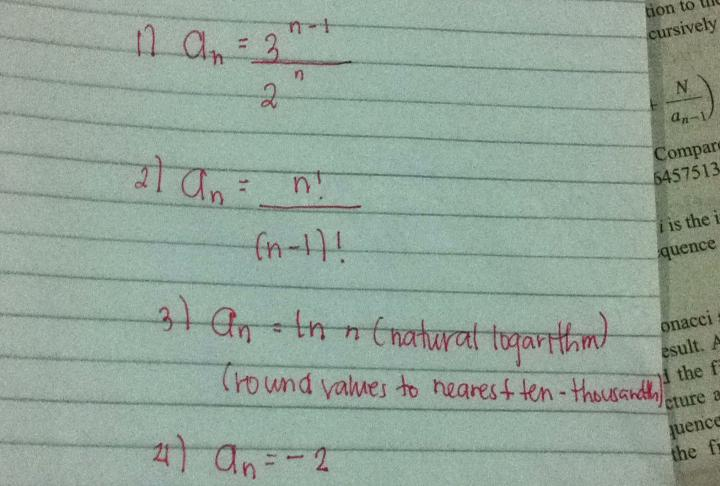 1) aₙ = 3ⁿ⁻¹
2ⁿ
2) aₙ = n!
(n-1)!
3) aₙ = ln n (natural logarithm)
(round values to nearest ten-thousandth)
4) aₙ = -2
tion to
cursively
N
aₙ₋₁)
Compar
6457513
i is the i
quence
onacci
esult. A
the f
cture a
quence
the fi